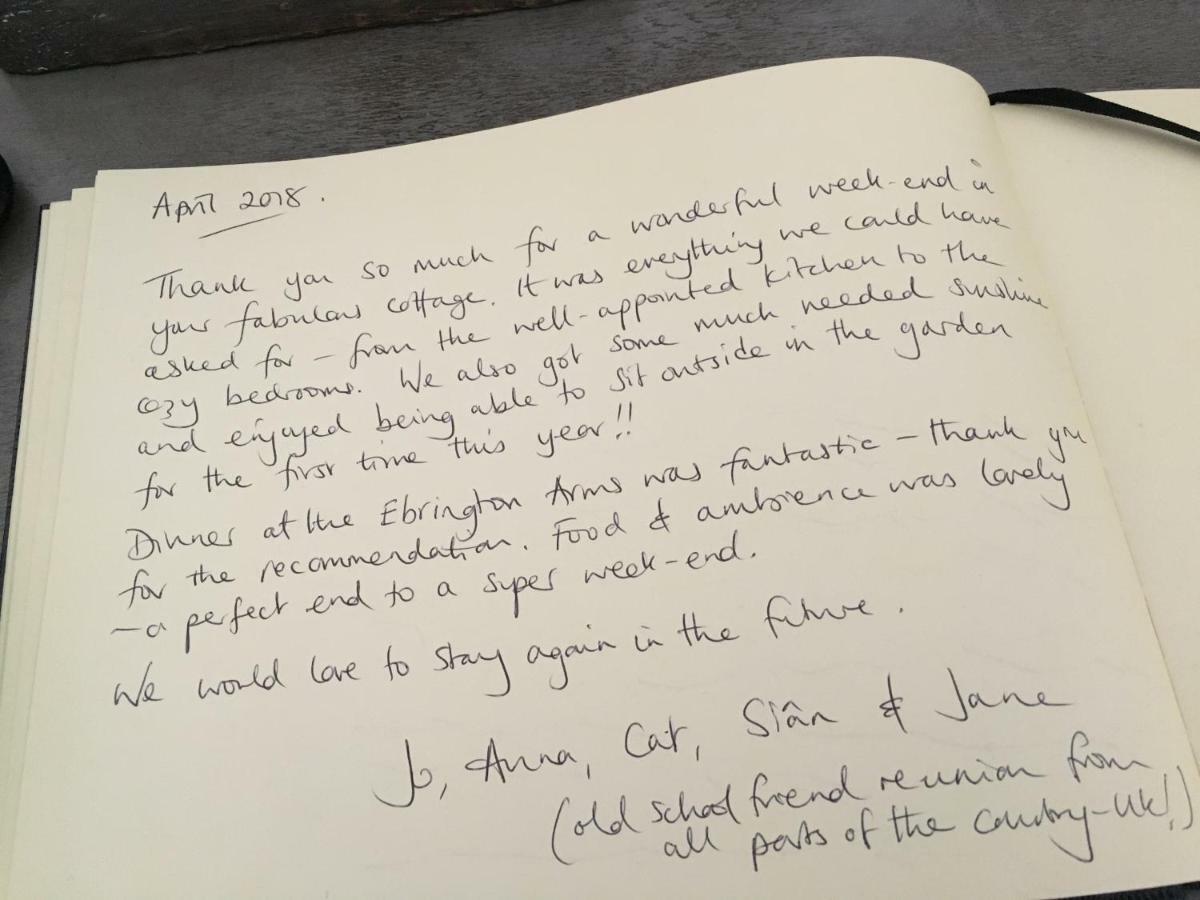 April 2018.
Thank you so much for a wonderful week-end in
your fabulous cottage. It was everything we could have
asked for – from the well-appointed kitchen to the
cozy bedrooms. We also got some much needed sunshine
and enjoyed being able to sit outside in the garden
for the first time this year!!
Dinner at the Ebrington Arms was fantastic – thank you
for the recommendation. Food & ambience was lovely
– a perfect end to a super week-end.
We would love to stay again in the future.
Jo, Anna, Cat, Siân & Jane
(old school friend reunion from
all parts of the country-UK!)